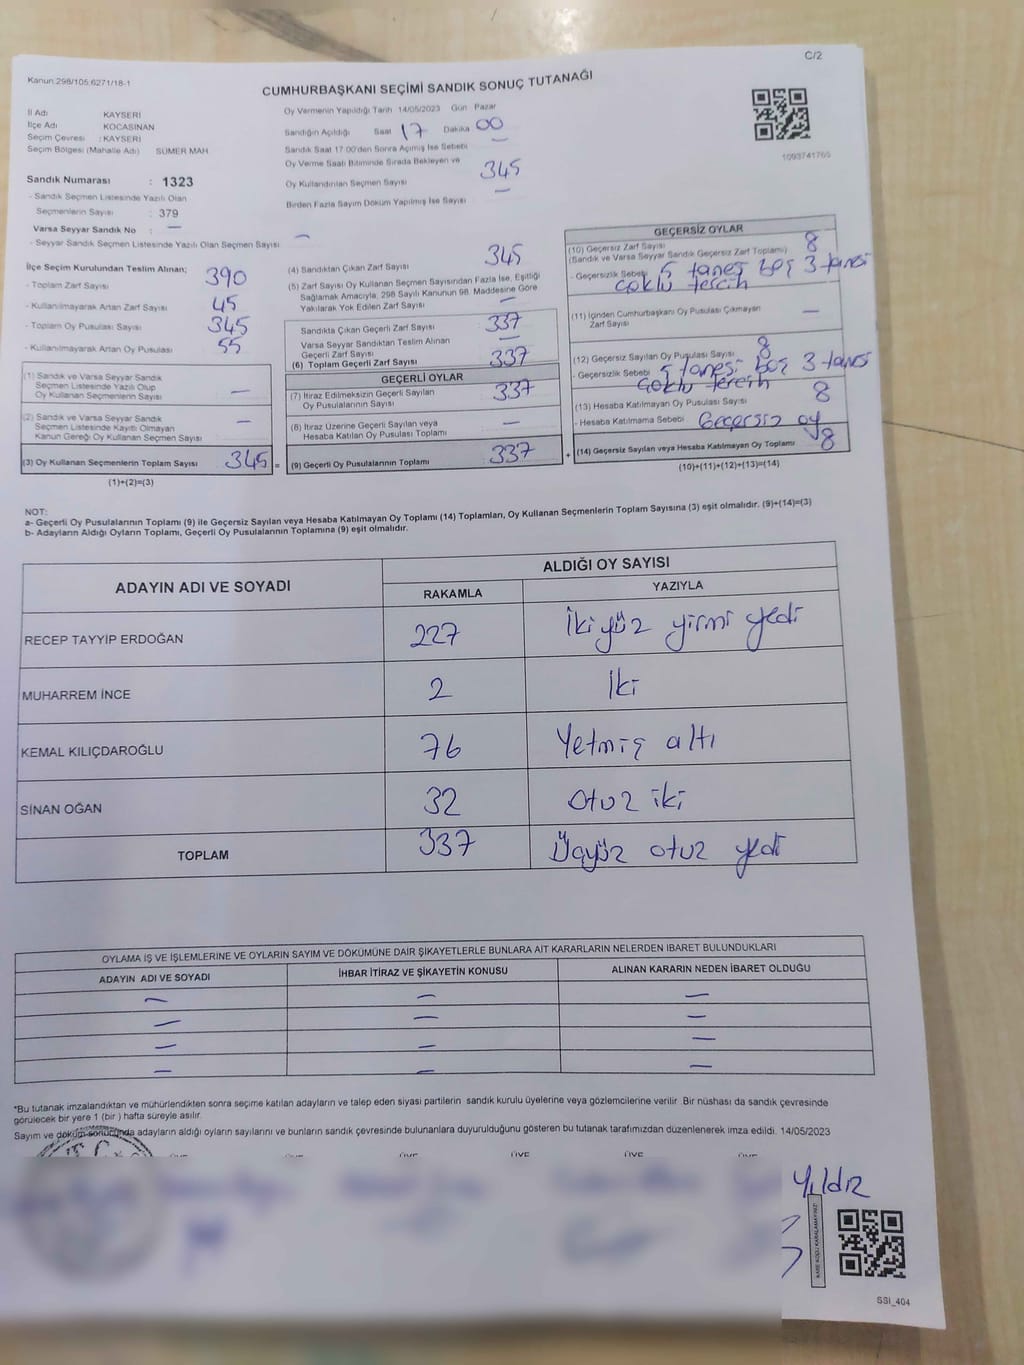 C/2
Kanun:298/105,6271/18-1
CUMHURBAŞKANI SEÇİMİ SANDIK SONUÇ TUTANAĞI
İl Adı KAYSERİ
İlçe Adı KOCASİNAN
Seçim Çevresi : KAYSERİ
Seçim Bölgesi (Mahalle Adı) SÜMER MAH
Sandık Numarası : 1323
- Sandık Seçmen Listesinde Yazılı Olan
Seçmenlerin Sayısı : 379
Varsa Seyyar Sandık No : —
- Seyyar Sandık Seçmen Listesinde Yazılı Olan Seçmen Sayısı —
Oy Vermenin Yapıldığı Tarih 14/05/2023 Gün Pazar
Sandığın Açıldığı Saat 17 Dakika 00
Sandık Saat 17:00'den Sonra Açılmış İse Sebebi —
Oy Verme Saati Bitiminde Sırada Bekleyen ve
Oy Kullandırılan Seçmen Sayısı 345
Birden Fazla Sayım Döküm Yapılmış İse Sayısı —
1093741765
İlçe Seçim Kurulundan Teslim Alınan;
- Toplam Zarf Sayısı 390
- Kullanılmayarak Artan Zarf Sayısı 45
- Toplam Oy Pusulası Sayısı 345
- Kullanılmayarak Artan Oy Pusulası 55
(1) Sandık ve Varsa Seyyar Sandık
Seçmen Listesinde Yazılı Olup
Oy Kullanan Seçmen Sayısı —
(2) Sandık ve Varsa Seyyar Sandık
Seçmen Listesinde Kayıtlı Olmayan
Kanun Gereği Oy Kullanan Seçmen Sayısı —
(3) Oy Kullanan Seçmenlerin Toplam Sayısı 345 =
(1)+(2)=(3)
(4) Sandıktan Çıkan Zarf Sayısı 345
(5) Zarf Sayısı Oy Kullanan Seçmen Sayısından Fazla İse, Eşitliği
Sağlamak Amacıyla, 298 Sayılı Kanunun 98. Maddesine Göre
Yakılarak Yok Edilen Zarf Sayısı —
Sandıkta Çıkan Geçerli Zarf Sayısı 337
Varsa Seyyar Sandıktan Teslim Alınan
Geçerli Zarf Sayısı —
(6) Toplam Geçerli Zarf Sayısı 337
GEÇERLİ OYLAR
(7) İtiraz Edilmeksizin Geçerli Sayılan
Oy Pusulalarının Sayısı 337
(8) İtiraz Üzerine Geçerli Sayılan veya
Hesaba Katılan Oy Pusulası Toplamı —
(9) Geçerli Oy Pusulalarının Toplamı 337 +
GEÇERSİZ OYLAR
(10) Geçersiz Zarf Sayısı
(Sandık ve Varsa Seyyar Sandık Geçersiz Zarf Toplamı) 8
- Geçersizlik Sebebi 5 tanesi boş 3 tanesi
çoklu tercih
(11) İçinden Cumhurbaşkanı Oy Pusulası Çıkmayan
Zarf Sayısı —
(12) Geçersiz Sayılan Oy Pusulası Sayısı 8
- Geçersizlik Sebebi 5 tanesi boş 3 tanesi
çoklu tercih
(13) Hesaba Katılmayan Oy Pusulası Sayısı 8
- Hesaba Katılmama Sebebi Geçersiz oy
(14) Geçersiz Sayılan veya Hesaba Katılmayan Oy Toplamı 8
(10)+(11)+(12)+(13)=(14)
NOT:
a- Geçerli Oy Pusulalarının Toplamı (9) ile Geçersiz Sayılan veya Hesaba Katılmayan Oy Toplamı (14) Toplamları, Oy Kullanan Seçmenlerin Toplam Sayısına (3) eşit olmalıdır. (9)+(14)=(3)
b- Adayların Aldığı Oyların Toplamı, Geçerli Oy Pusulalarının Toplamına (9) eşit olmalıdır.
ADAYIN ADI VE SOYADI ALDIĞI OY SAYISI
RAKAMLA YAZIYLA
RECEP TAYYİP ERDOĞAN 227 İki yüz yirmi yedi
MUHARREM İNCE 2 İki
KEMAL KILIÇDAROĞLU 76 Yetmiş altı
SİNAN OĞAN 32 Otuz iki
TOPLAM 337 Üçyüz otuz yedi
OYLAMA İŞ VE İŞLEMLERİNE VE OYLARIN SAYIM VE DÖKÜMÜNE DAİR ŞİKAYETLERLE BUNLARA AİT KARARLARIN NELERDEN İBARET BULUNDUKLARI
ADAYIN ADI VE SOYADI İHBAR İTİRAZ VE ŞİKAYETİN KONUSU ALINAN KARARIN NEDEN İBARET OLDUĞU
— — —
— — —
— — —
— — —
*Bu tutanak imzalandıktan ve mühürlendikten sonra seçime katılan adayların ve talep eden siyasi partilerin sandık kurulu üyelerine veya gözlemcilerine verilir. Bir nüshası da sandık çevresinde
görülecek bir yere 1 (bir ) hafta süreyle asılır.
Sayım ve döküm sonucunda adayların aldığı oyların sayılarını ve bunların sandık çevresinde bulunanlara duyurulduğunu gösteren bu tutanak tarafımızdan düzenlenerek imza edildi. 14/05/2023
T.C.
ÜYE ÜYE ÜYE ÜYE ÜYE ÜYE
Yıldız
KARE KODU KARALAMAYINIZ!
SSI_404